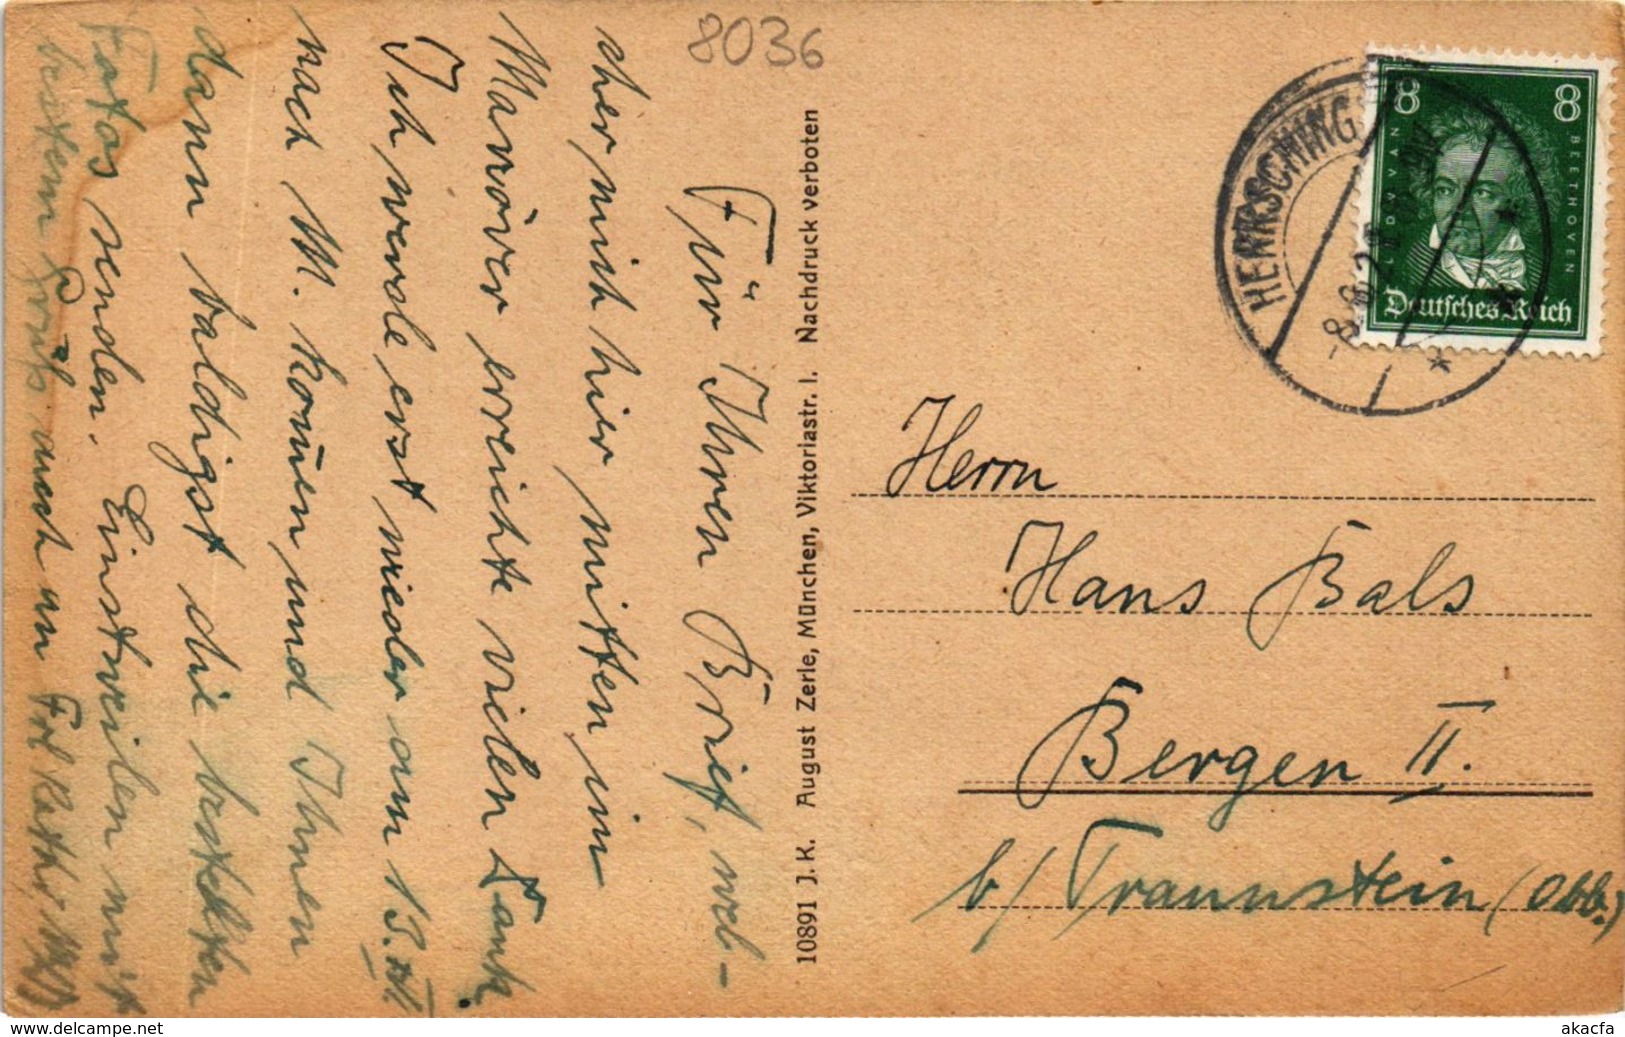 8036
Für Ihren Brief, wel-
cher mich hier mitten im
Manöver erreichte vielen Dank.
Ich werde erst wieder am 13. IX.
nach M. kommen und Ihnen
dann baldigst die bestellten
Fotos senden. Einstweilen mit
bestem Gruß auch an Frl Kathi
10891 J. K. August Zerle, München, Viktoriastr. I. Nachdruck verboten
HERRSCHING
8 8
LUDW. VAN BEETHOVEN
Deutsches Reich
Herrn
Hans Bals
Bergen II.
b/ Traunstein (Obb.)
www.delcampe.net
akacfa